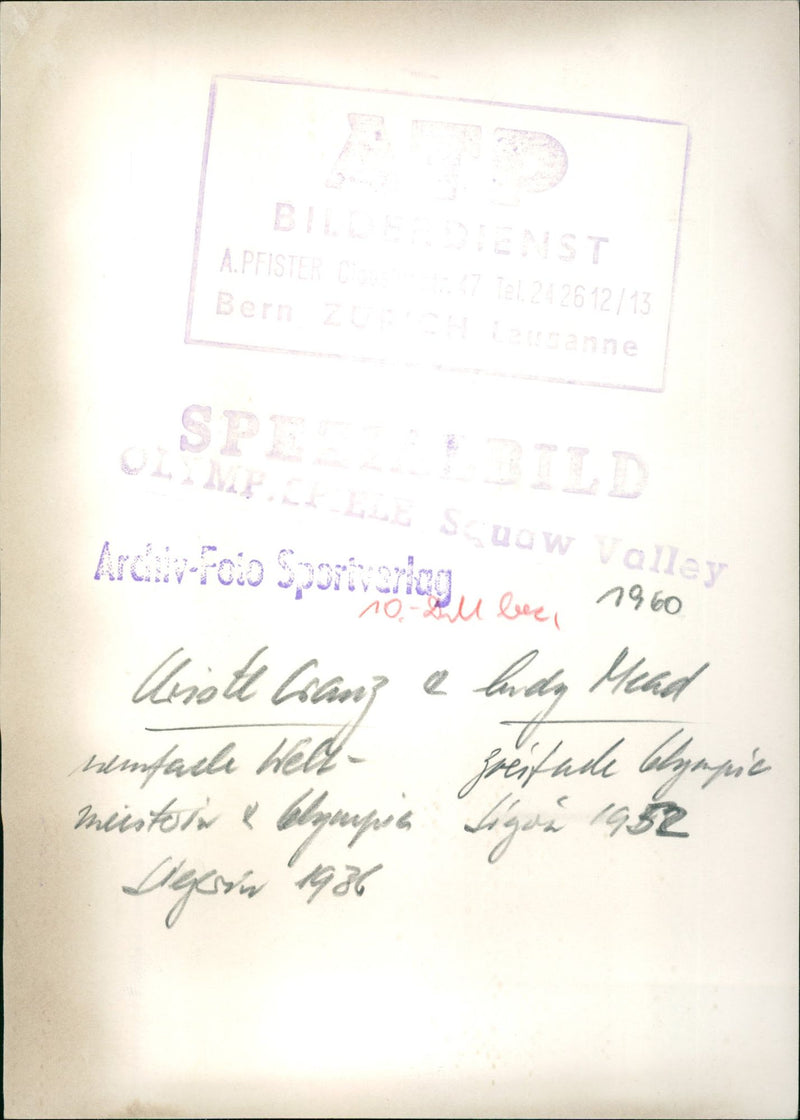 ATP
BILDERDIENST
A. PFISTER Tel. 24 26 12/13
Bern ZÜRICH Lausanne
SPEZIALBILD
OLYMP. SPIELE Squaw Valley
Archiv-Foto Sportverlag
10.- 1960
Christl Cranz & Andy Mead
neunfache Welt-
meisterin & Olympia
Siegerin 1936
zweifache Olympia
Sigerin 1952